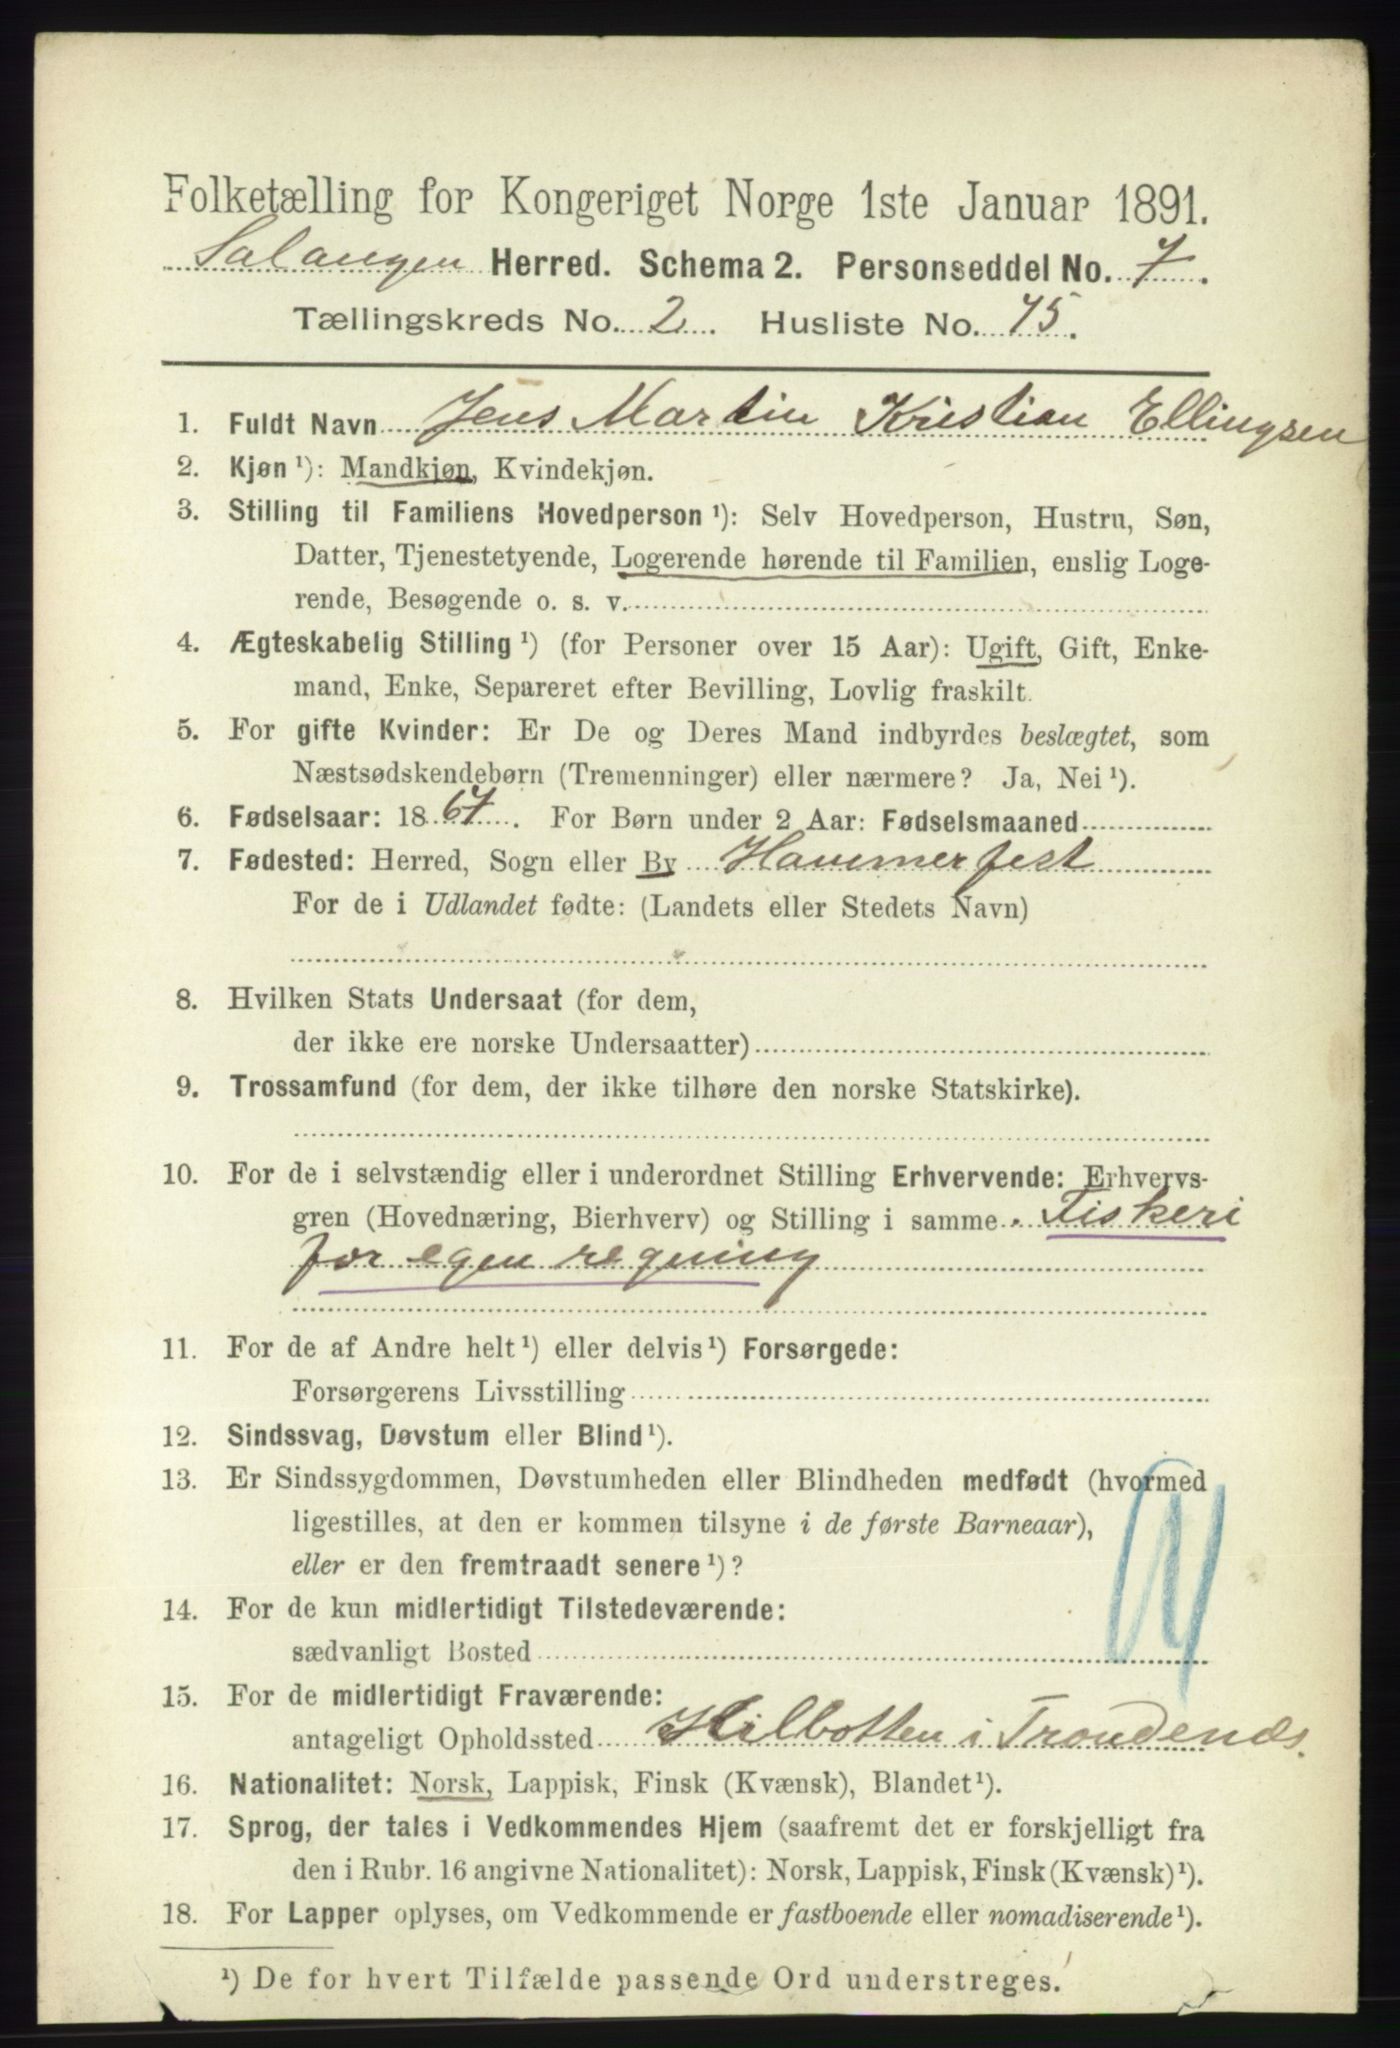 Folketælling for Kongeriget Norge 1ste Januar 1891.
Salangen Herred. Schema 2. Personseddel No. 7.
Tællingskreds No. 2. Husliste No. 75.
1. Fuldt Navn Jens Martin Kristian Ellingsen
2. Kjøn ¹): Mandkjøn, Kvindekjøn.
3. Stilling til Familiens Hovedperson ¹): Selv Hovedperson, Hustru, Søn,
Datter, Tjenestetyende, Logerende hørende til Familien, enslig Loge-
rende, Besøgende o. s. v.
4. Ægteskabelig Stilling ¹) (for Personer over 15 Aar): Ugift, Gift, Enke-
mand, Enke, Separeret efter Bevilling, Lovlig fraskilt.
5. For gifte Kvinder: Er De og Deres Mand indbyrdes beslægtet, som
Næstsødskendebørn (Tremenninger) eller nærmere? Ja, Nei ¹).
6. Fødselsaar: 1867. For Børn under 2 Aar: Fødselsmaaned
7. Fødested: Herred, Sogn eller By Hammerfest
For de i Udlandet fødte: (Landets eller Stedets Navn)
8. Hvilken Stats Undersaat (for dem,
der ikke ere norske Undersaatter)
9. Trossamfund (for dem, der ikke tilhøre den norske Statskirke).
10. For de i selvstændig eller i underordnet Stilling Erhvervende: Erhvervs-
gren (Hovednæring, Bierhverv) og Stilling i samme Fiskeri
for egen regning
11. For de af Andre helt ¹) eller delvis ¹) Forsørgede:
Forsørgerens Livsstilling
12. Sindssvag, Døvstum eller Blind ¹).
13. Er Sindssygdommen, Døvstumheden eller Blindheden medfødt (hvormed
ligestilles, at den er kommen tilsyne i de første Barneaar),
eller er den fremtraadt senere ¹)?
14. For de kun midlertidigt Tilstedeværende:
sædvanligt Bosted
15. For de midlertidigt Fraværende:
antageligt Opholdssted Kilbotten i Trondenæs.
16. Nationalitet: Norsk, Lappisk, Finsk (Kvænsk), Blandet ¹).
17. Sprog, der tales i Vedkommendes Hjem (saafremt det er forskjelligt fra
den i Rubr. 16 angivne Nationalitet): Norsk, Lappisk, Finsk (Kvænsk) ¹).
18. For Lapper oplyses, om Vedkommende er fastboende eller nomadiserende ¹).
¹) De for hvert Tilfælde passende Ord understreges.